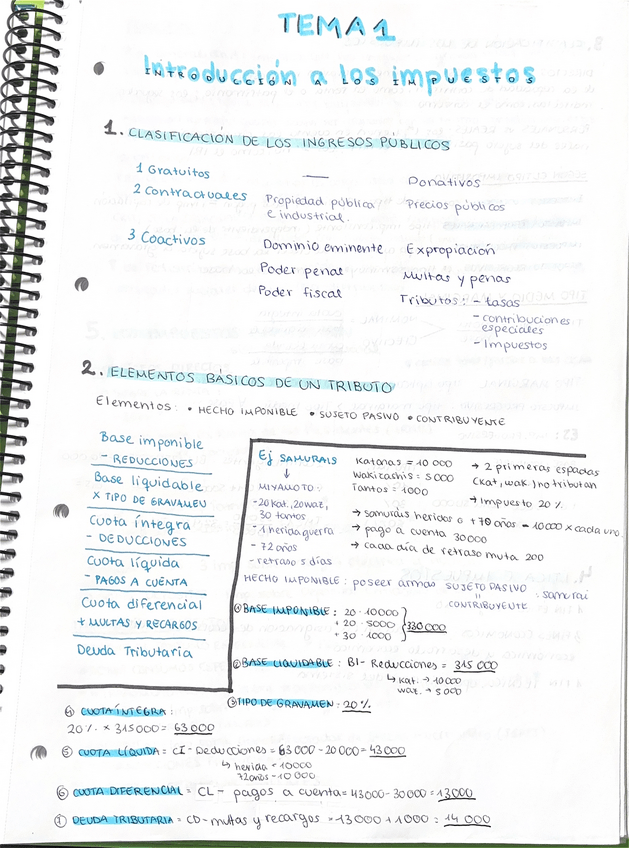 TEMA 1
Introducción a los impuestos
INTRODUCCIÓN A LOS IMPUESTOS
1. CLASIFICACIÓN DE LOS INGRESOS PÚBLICOS
1 Gratuitos — Donativos
2 Contractuales Propiedad pública e industrial. Precios públicos
3 Coactivos Dominio eminente Expropiación
Poder penal Multas y penas
Poder fiscal Tributos: - tasas
- contribuciones especiales
- Impuestos
2. ELEMENTOS BÁSICOS DE UN TRIBUTO
Elementos: • HECHO IMPONIBLE • SUJETO PASIVO • CONTRIBUYENTE
Base imponible
- REDUCCIONES
Base liquidable
x TIPO DE GRAVAMEN
Cuota íntegra
- DEDUCCIONES
Cuota líquida
- PAGOS A CUENTA
Cuota diferencial
+ MULTAS Y RECARGOS
Deuda Tributaria
Ej SAMURAIS
↓
MIYAMOTO:
- 20 kat., 20 waz,
30 tantos
- 1 herida guerra
- 72 años
- retraso 5 días
Katanas = 10 000
Wakizashis = 5 000
Tantos = 1000
→ 2 primeras espadas
(kat, wak.) no tributan
→ Impuesto 20%
→ samurais heridos o +70 años = 10000 x cada uno
→ pago a cuenta 30000
→ cada día de retraso muta 200
HECHO IMPONIBLE: poseer armas SUJETO PASIVO : samurai
=
CONTRIBUYENTE
① BASE IMPONIBLE: 20 · 10000
+ 20 · 5000 } 330 000
+ 30 · 1000
② BASE LIQUIDABLE: BI - Reducciones = 315 000
↳ kat. → 10000
wat. → 5000
③ TIPO DE GRAVAMEN: 20%
④ CUOTA ÍNTEGRA:
20% x 315000 = 63 000
⑤ CUOTA LÍQUIDA = CI - Deducciones = 63 000 - 20 000 = 43000
↳ herida = 10000
72 años - 10 000
⑥ CUOTA DIFERENCIAL = CL - pagos a cuenta = 43000 - 30 000 = 13000
⑦ DEUDA TRIBUTARIA = CD - multas y recargos = 13 000 + 1 000 = 14 000